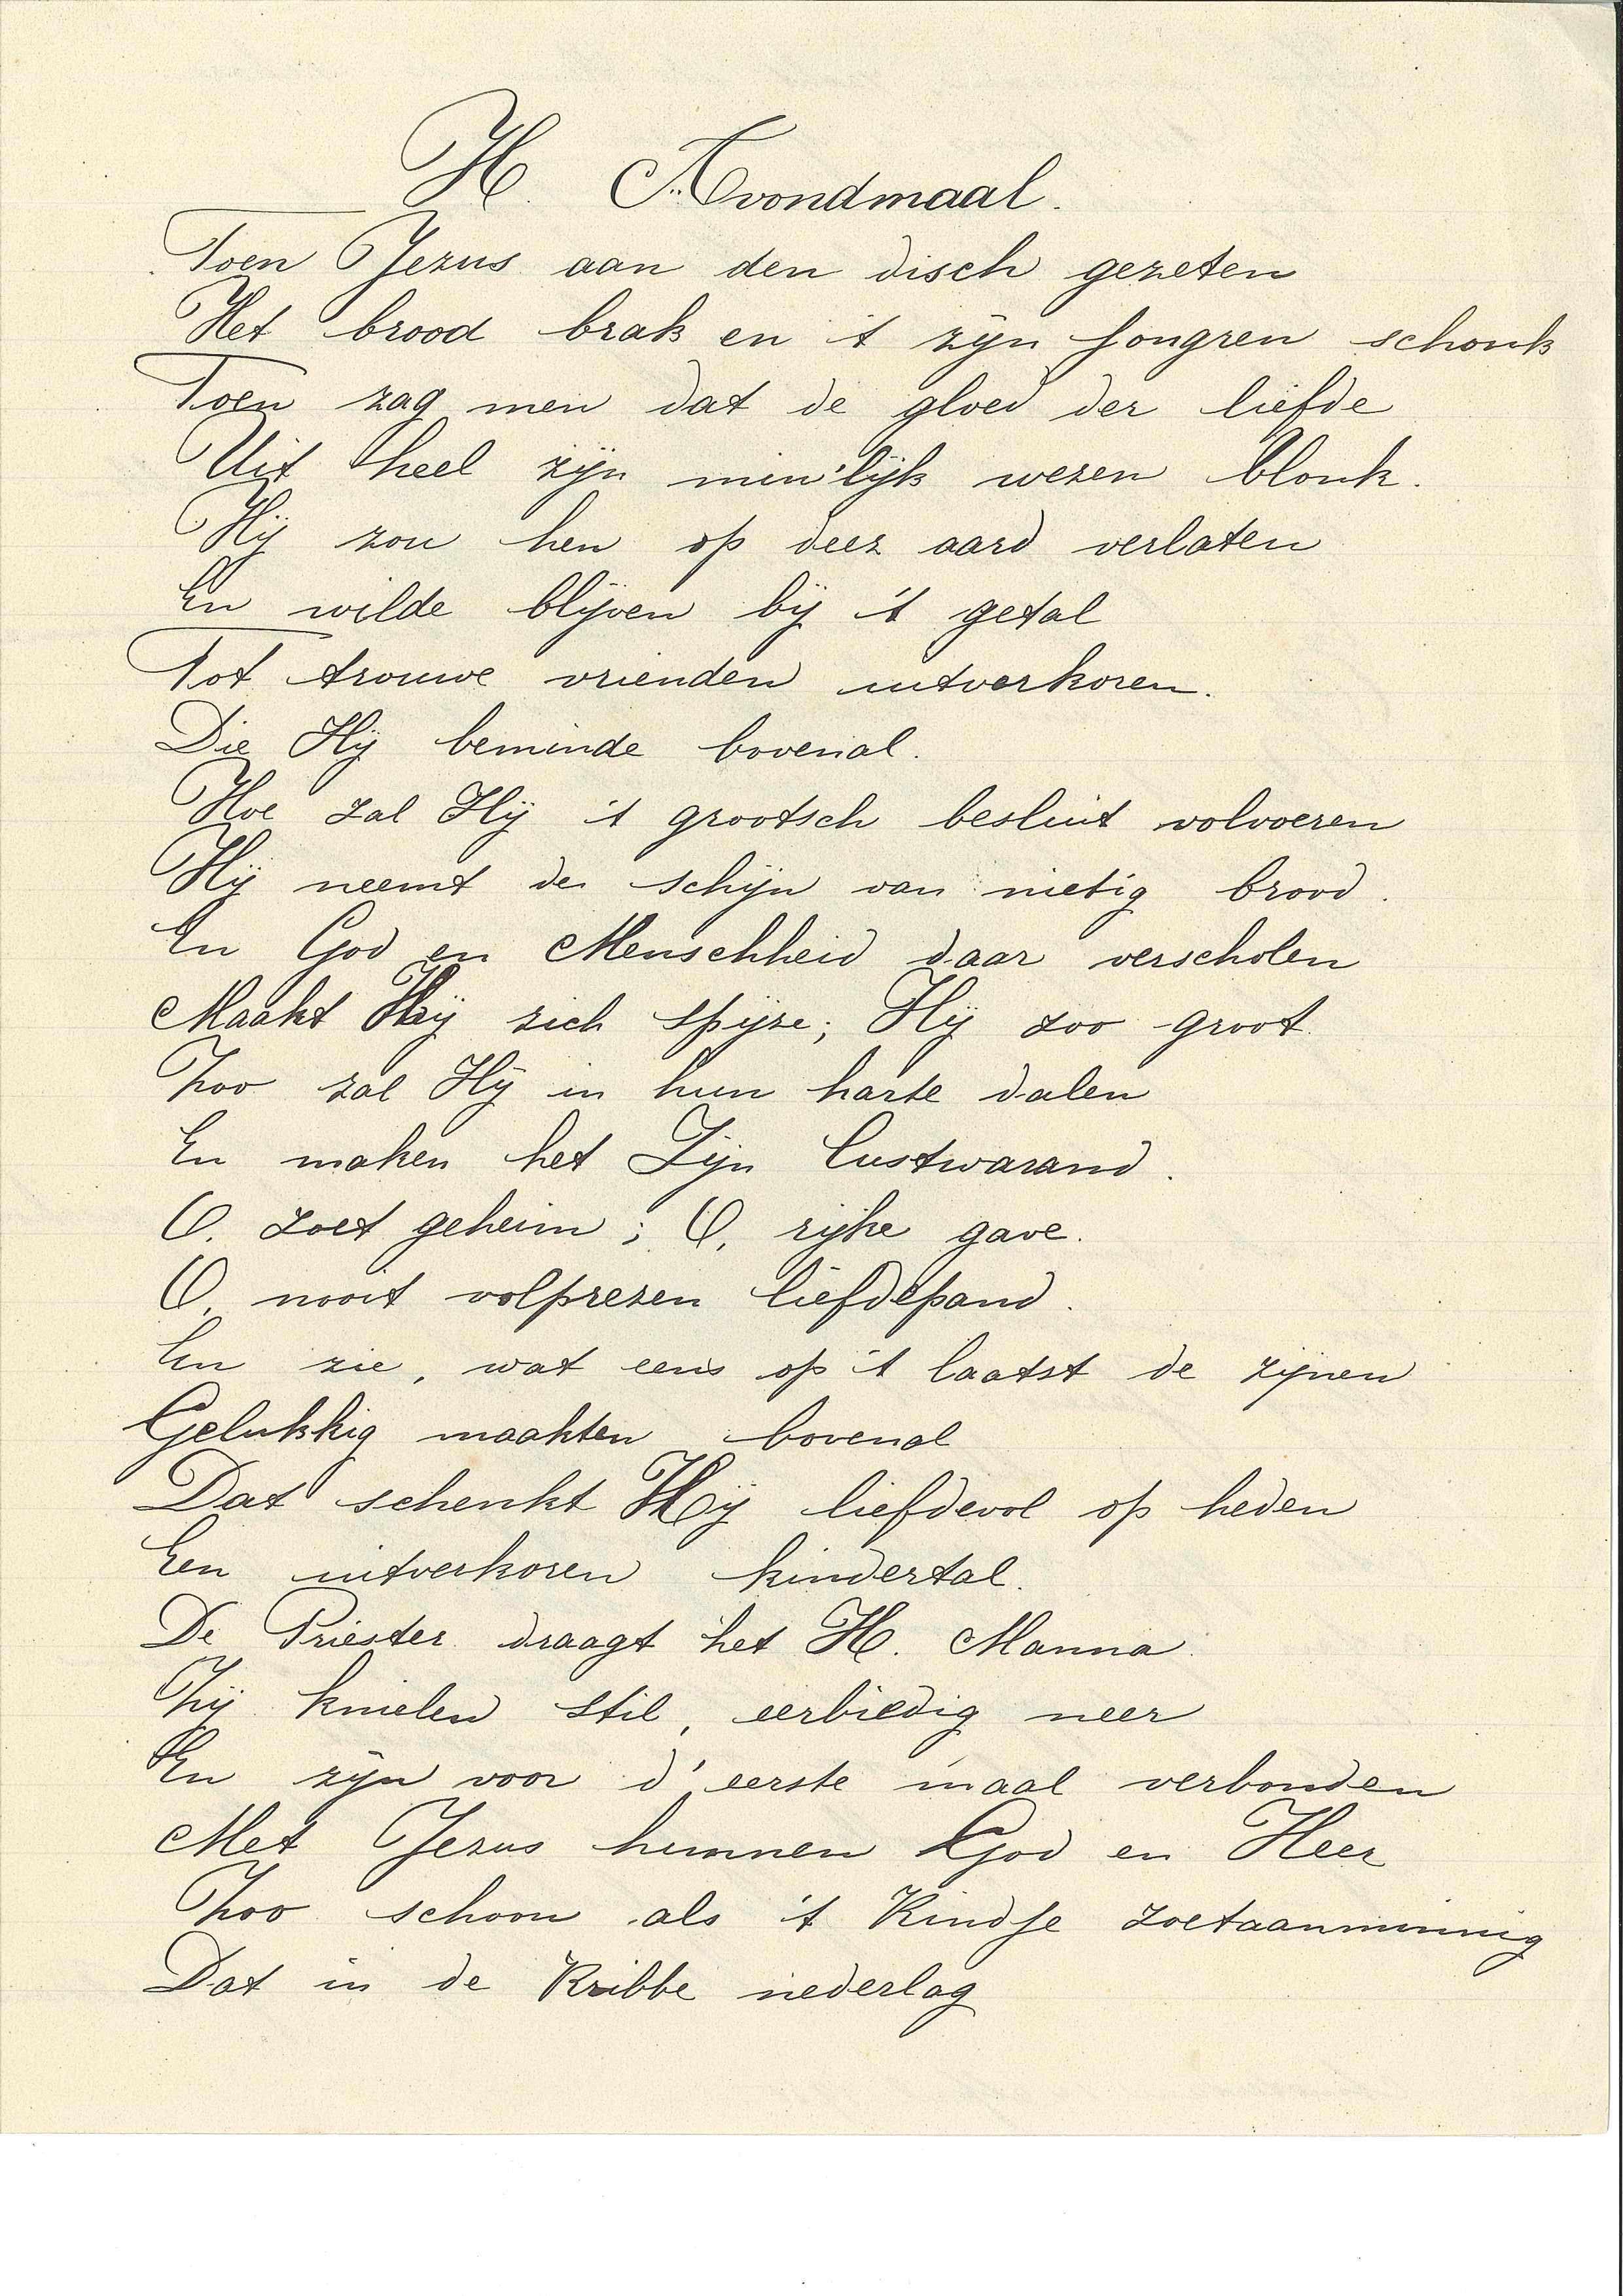 H. Avondmaal.
Toen Jezus aan den disch gezeten
Het brood brak en 't zijn jongren schonk
Toen zag men dat de gloed der liefde
Uit heel zijn min'lijk wezen blonk.
Hij zou hen op deez aard verlaten
En wilde blijven bij 't getal
Tot trouwe vrienden uitverkoren.
Die Hij beminde bovenal.
Hoe zal Hij 't grootsch besluit volvoeren
Hij neemt de schijn van nietig brood.
En God en Menschheid daar verscholen
Maakt Hij zich spijze; Hij zoo groot
Zoo zal Hij in hun harte dalen
En maken het Zijn lustwarand.
O, zoet geheim; O, rijke gave.
O, nooit volprezen liefdepand.
En zie, wat eens op 't laatst de zijnen
Gelukkig maakten bovenal
Dat schenkt Hij liefdevol op heden
Een uitverkoren kindertal.
De Priester draagt het H. Manna.
Zij knielen stil, eerbiedig neer
En zijn voor d' eerste maal verbonden
Met Jezus hunnen God en Heer
Zoo schoon als 't Kindje zoetaanminnig
Dat in de Kribbe nederlag